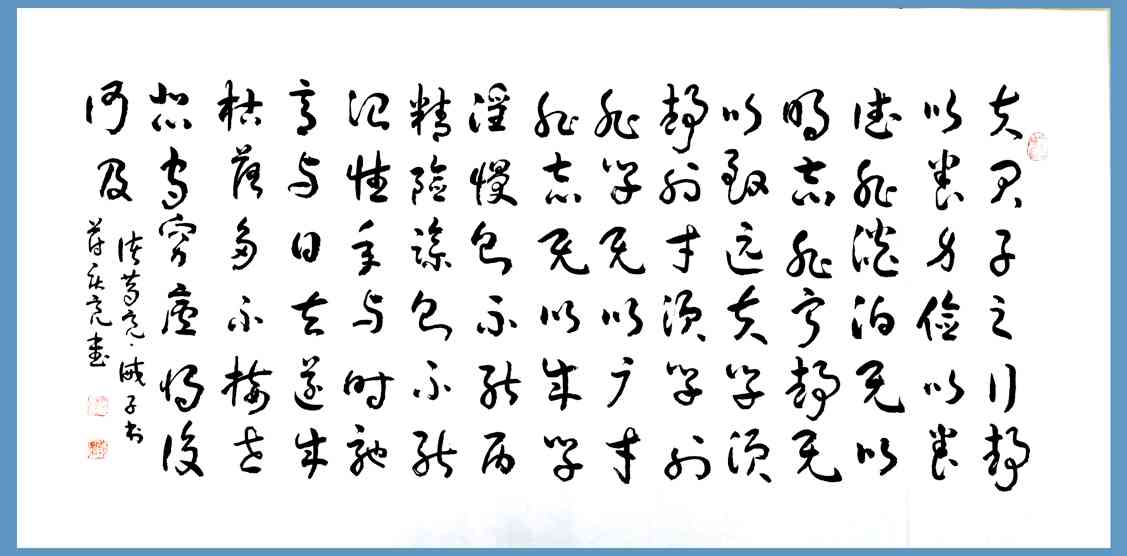 夫君子之行静
以养身俭以养
德非淡泊无以
明志非宁静无
以致远夫学须
静也才须学也
非学无以广才
非志无以成学
淫慢则不能励
精险躁则不能
治性年与时驰
意与日去遂成
枯落多不接世
悲守穷庐将復
何及
诸葛亮·诫子书
蒋亮书